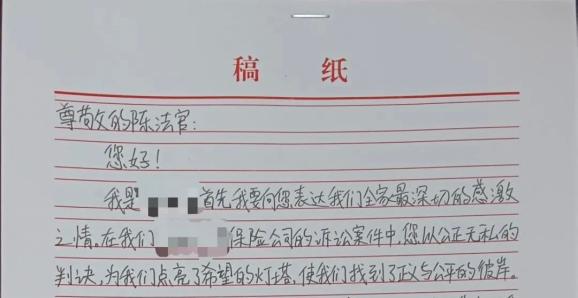 稿 纸
尊敬的陈法官：
您好！
我是 首先我要向您表达我们全家最深切的感激
之情。在我们 保险公司的诉讼案件中，您以公正无私的
判决，为我们点亮了希望的灯塔，使我们找到了正义与公平的彼岸。